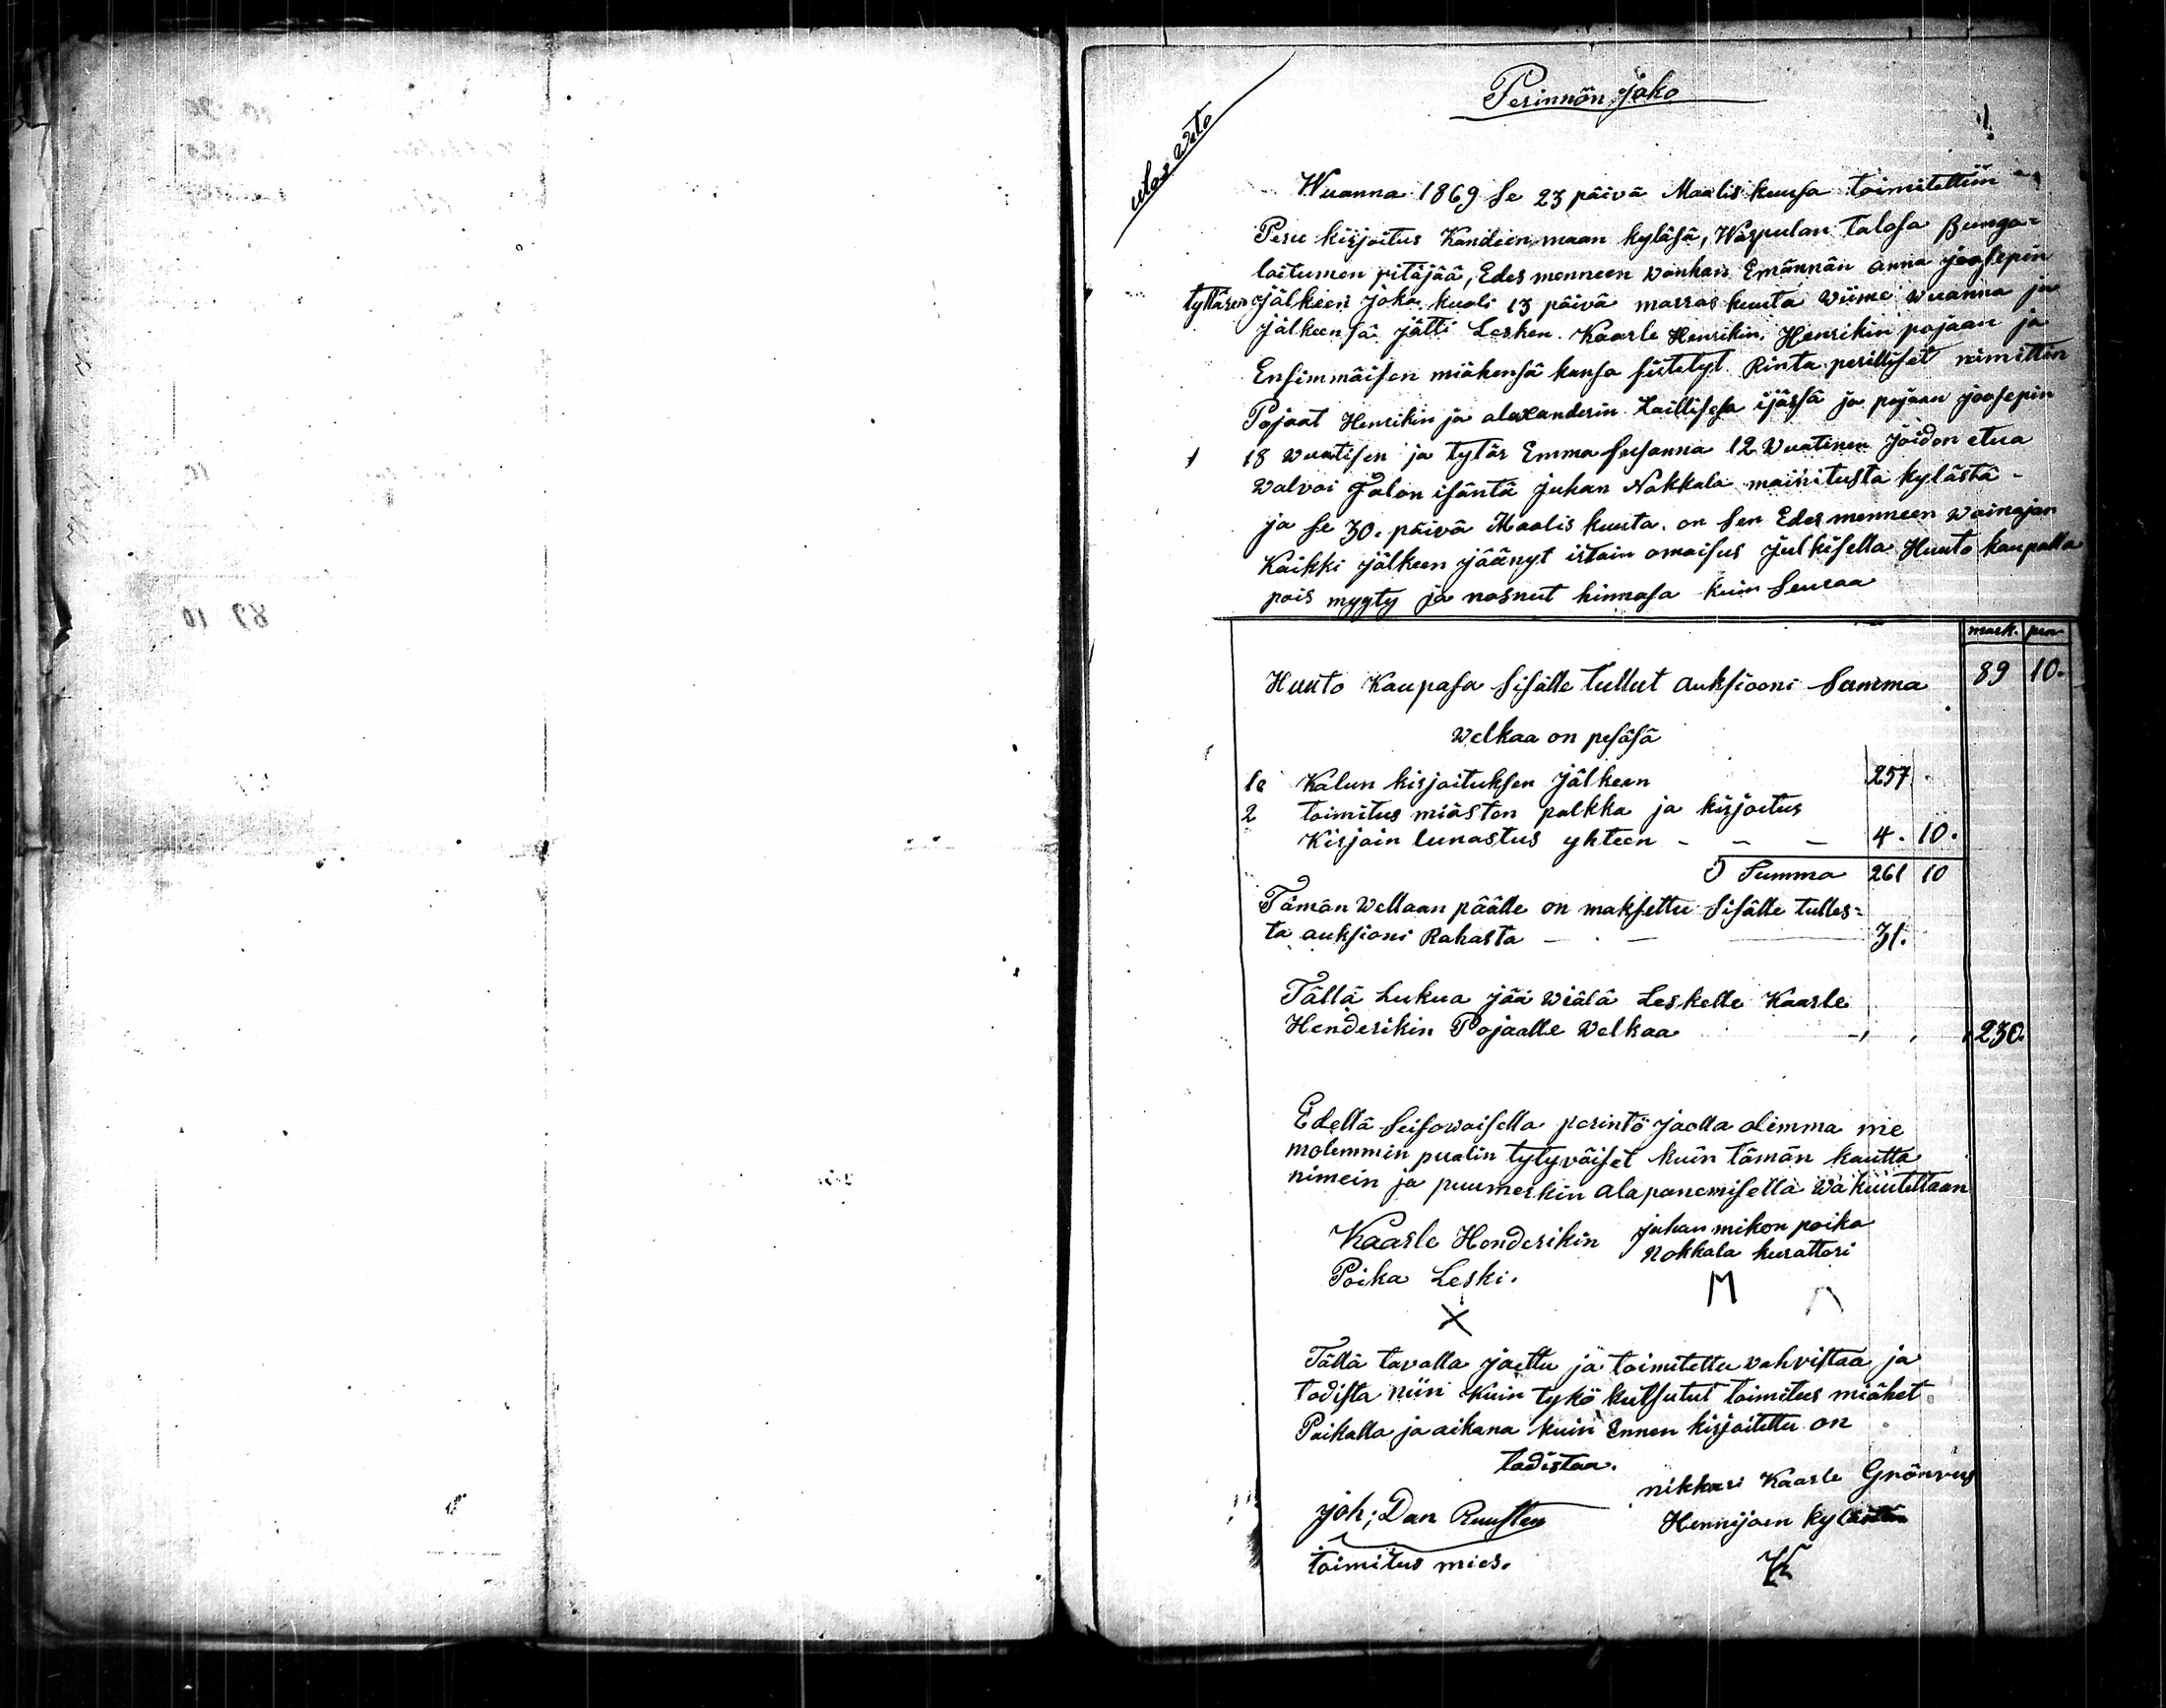 Perinnön jako
ulos xxto
Wuanna 1869 se 23 päivä Maalis kuusa toimitettiin
Peru kirjoitus Kandeenmaan kyläsä, Waspulan talosa Bunga=
laitumen pitäjää, Edes menneen wanhan Emännän anna joosepin
tyttären jälkeen joka kuoli 13 päivä marras kuuta wiime wuanna ja
jälkeensä jätti Lesken Kaarle Henrikin, Henrikin pojaan ja
Ensimmäisen miähensä kansa siitetyt Rinta perilliset nimittin
Pojaat Henrikin ja alexanderin laillisesa ijässä ja pojaan joosepin
18 wuatisen ja tytär Emma Susanna 12 Wuatinen joiden etua
walvoi Talon isäntä juhan Nokkala mainitusta kylästä -
ja se 30. päivä Maalis kuuta. on sen Edes menneen wainajan
Kaikki jälkeen jäänyt irtain omaisus julkisella Huuto kaupalla
pois myyty ja nosnut hinnasa kuin Seuraa
mark. pen
Huuto Kaupasa sisälle tullut auksiooni Summa 89 10.
Welkaa on pesäsä
1o Kalun kirjoituksen jälkeen 257
2 toimitus miästen palkka ja kirjoitus
Kirjain lunastus yhteen - - - 4. 10.
Summa 261 10
Tämän Wellaan päälle on maksettu sisälle tulles=
ta auksioni Rahasta - - 31.
Tällä Lukua jää wiälä Leskelle Kaarle
Henderikin Pojaalle Welkaa 230.
Edellä seisowaisella perintö jaolla olemma me
molemmin puolin tytyväiset kuin tämän kautta
nimein ja puumerkin alapanemisella wakuutettaan
Kaarle Henderikin juhan mikon poika
Poika Leski. Nokkala kurattori
X M
Tällä tavalla jaettu ja toimitettu vahvistaa ja
todista niin kuin tykö kutsutut toimitus miähet
Paikalla ja aikana kuin Ennen kirjoitettu on
todistaa.
joh; Dan Ruusten nikkari Kaarle Grönrus
toimitus mies. Hennijoen kylästä